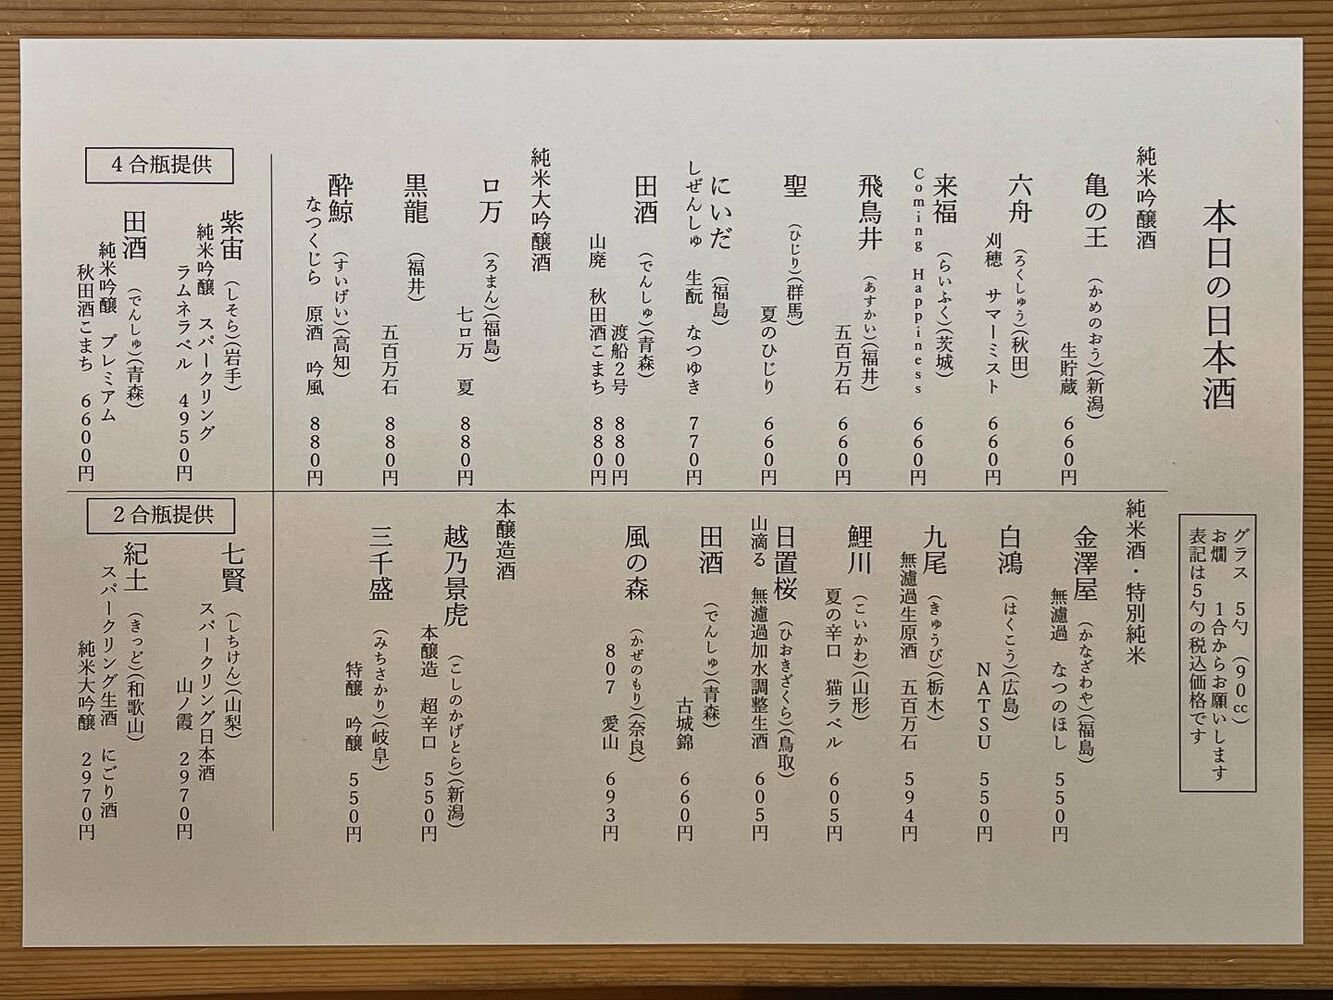 本日の日本酒
グラス　5勺　(90cc)
お燗　1合からお願いします
表記は5勺の税込価格です
純米吟醸酒
亀の王　(かめのおう)(新潟)
生貯蔵　660円
六舟　(ろくしゅう)(秋田)
刈穂　サマーミスト　660円
来福　(らいふく)(茨城)
Coming Happiness　660円
飛鳥井　(あすかい)(福井)
五百万石　660円
聖　(ひじり)(群馬)
夏のひじり　660円
にいだ　(福島)
しぜんしゅ　生酛　なつゆき　770円
田酒　(でんしゅ)(青森)
渡船2号　880円
山廃　秋田酒こまち　880円
純米大吟醸酒
ロ万　(ろまん)(福島)
七ロ万　夏　880円
黒龍　(福井)
五百万石　880円
酔鯨　(すいげい)(高知)
なつくじら　原酒　吟風　880円
純米酒・特別純米
金澤屋　(かなざわや)(福島)
無濾過　なつのほし　550円
白鴻　(はくこう)(広島)
NATSU　550円
九尾　(きゅうび)(栃木)
無濾過生原酒　五百万石　594円
鯉川　(こいかわ)(山形)
夏の辛口　猫ラベル　605円
日置桜　(ひおきざくら)(鳥取)
山滴る　無濾過加水調整生酒　605円
田酒　(でんしゅ)(青森)
古城錦　660円
風の森　(かぜのもり)(奈良)
807　愛山　693円
本醸造酒
越乃景虎　(こしのかげとら)(新潟)
本醸造　超辛口　550円
三千盛　(みちさかり)(岐阜)
特醸　吟醸　550円
4合瓶提供
紫宙　(しそら)(岩手)
純米吟醸　スパークリング
ラムネラベル　4950円
田酒　(でんしゅ)(青森)
純米吟醸　プレミアム
秋田酒こまち　6600円
2合瓶提供
七賢　(しちけん)(山梨)
スパークリング日本酒
山ノ霞　2970円
紀土　(きっど)(和歌山)
スパークリング生酒　にごり酒
純米大吟醸　2970円